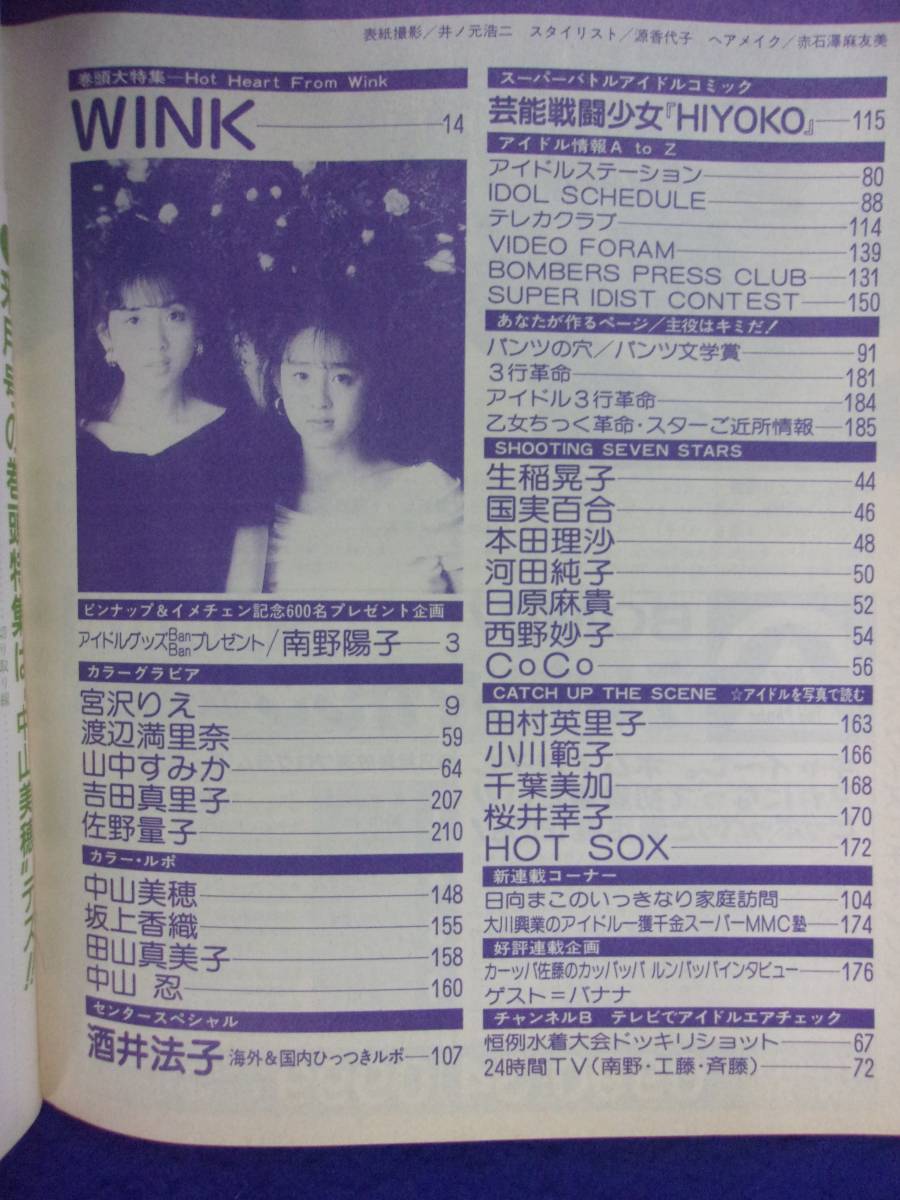 表紙撮影／井ノ元浩二 スタイリスト／源香代子 ヘアメイク／赤石澤麻友美
巻頭大特集―Hot Heart From Wink
WINK 14
ピンナップ＆イメチェン記念600名プレゼント企画
アイドルグッズBan Banプレゼント／南野陽子 3
カラーグラビア
宮沢りえ 9
渡辺満里奈 59
山中すみか 64
吉田真里子 207
佐野量子 210
カラー・ルポ
中山美穂 148
坂上香織 155
田山真美子 158
中山 忍 160
センタースペシャル
酒井法子 海外＆国内ひっつきルポ 107
スーパーバトルアイドルコミック
芸能戦闘少女『HIYOKO』 115
アイドル情報A to Z
アイドルステーション 80
IDOL SCHEDULE 88
テレカクラブ 114
VIDEO FORAM 139
BOMBERS PRESS CLUB 131
SUPER IDIST CONTEST 150
あなたが作るページ／主役はキミだ！
パンツの穴／パンツ文学賞 91
3行革命 181
アイドル3行革命 184
乙女ちっく革命・スターご近所情報 185
SHOOTING SEVEN STARS
生稲晃子 44
国実百合 46
本田理沙 48
河田純子 50
日原麻貴 52
西野妙子 54
CoCo 56
CATCH UP THE SCENE ☆アイドルを写真で読む
田村英里子 163
小川範子 166
千葉美加 168
桜井幸子 170
HOT SOX 172
新連載コーナー
日向まこのいっきなり家庭訪問 104
大川興業のアイドル一獲千金スーパーMMC塾 174
好評連載企画
カーッパ佐藤のカッパッパ ルンパッパインタビュー 176
ゲスト＝バナナ
チャンネルB テレビでアイドルエアチェック
恒例水着大会ドッキリショット 67
24時間TV（南野・工藤・斉藤） 72
の巻頭特集は"中山美穂"デス!!